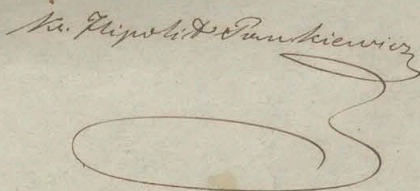 Ks. Hipolit Punkiewicz